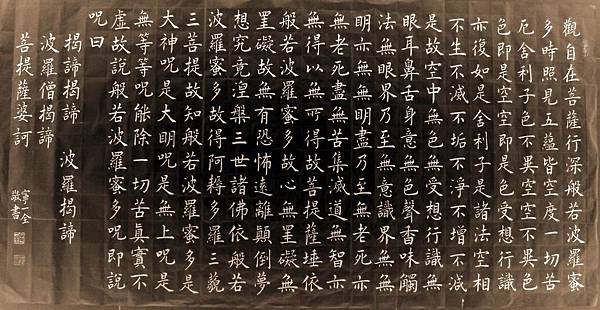 觀自在菩薩行深般若波羅蜜
多時照見五蘊皆空度一切苦
厄舍利子色不異空空不異色
色即是空空即是色受想行識
亦復如是舍利子是諸法空相
不生不滅不垢不淨不增不減
是故空中無色無受想行識無
眼耳鼻舌身意無色聲香味觸
法無眼界乃至無意識界無無
明亦無無明盡乃至無老死亦
無老死盡無苦集滅道無智亦
無得以無所得故菩提薩埵依
般若波羅蜜多故心無罣礙無
罣礙故無有恐怖遠離顛倒夢
想究竟涅槃三世諸佛依般若
波羅蜜多故得阿耨多羅三藐
三菩提故知般若波羅蜜多是
大神呪是大明呪是無上呪是
無等等呪能除一切苦真實不
虛故說般若波羅蜜多呪即說
呪曰
揭諦揭諦 波羅揭諦
波羅僧揭諦
菩提薩婆訶
敬書